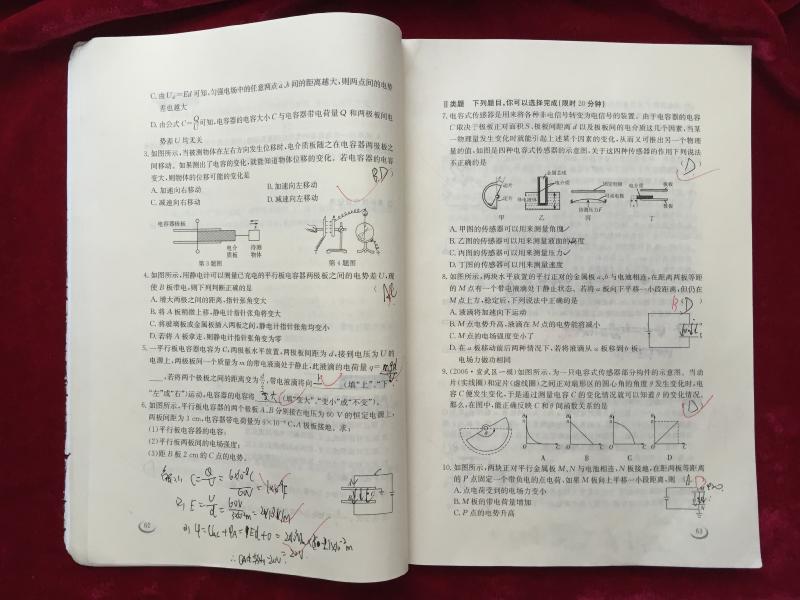 C. 由U_d=Ed可知,匀强电场中的任意两点a、b间的距离越大,则两点间的电势
差也越大
D. 由公式C=Q/U可知,电容器的电容大小C与电容器带电荷量Q和两极板间电
势差U均无关
3. 如图所示,当被测物体在左右方向发生位移时,电介质板随之在电容器两极板之
间移动。如果测出了电容的变化,就能知道物体位移的变化。若电容器的电容
变大,则物体的位移可能的变化是
B,D
A. 加速向右移动 B. 加速向左移动
C. 减速向右移动 D. 减速向左移动
电容器极板
电介质板 待测物体
第3题图 第4题图
4. 如图所示,用静电计可以测量已充电的平行板电容器两极板之间的电势差U,现
使B板带电,则下列判断正确的是
A. 增大两极之间的距离,指针张角变大
B. 将A板稍微上移,静电计指针张角将变大
C. 将玻璃板或金属板插入两板之间,静电计指针张角均变小
D. 若将A板拿走,则静电计指针张角变为零
5. 一平行板电容器电容为C,两极板水平放置,两极板间距为d,接到电压为U的
电源上,两极板间一个质量为m的带电液滴处于静止,此液滴的电荷量q=
,若将两个极板之间的距离变为 ,带电液滴将向 上 (填“上”、“下”、
“左”或“右”)运动,电容器的电容将 变大 (填“变大”、“变小”或“不变”)。
6. 如图所示,平行板电容器的两个极板A、B分别接在电压为60 V的恒定电源上,
两极板间距为3 cm,电容器带电荷量为6×10⁻⁸ C,A极板接地。求:
(1)平行板电容器的电容;
(2)平行板两板间的电场强度;
(3)距B板2 cm的C点的电势。
62
Ⅱ类题 下列题目,你可以选择完成(限时20分钟)
7. 电容式传感器是用来将各种非电信号转变为电信号的装置。由于电容器的电容
C取决于极板正对面积S、极板间距离d以及极板间的电介质这几个因素,当某
一物理量发生变化时就能引起上述某个因素的变化,从而又可推出另一个物理
量的值,如图是四种电容式传感器的示意图,关于这四种传感器的作用下列说法
不正确的是
(D)
动片 定片 金属芯线 电介质 导电液体 固定电极 可动电极 待测压力F 极板 极板
甲 乙 丙 丁
A. 甲图的传感器可以用来测量角度
B. 乙图的传感器可以用来测量液面的高度
C. 丙图的传感器可以用来测量压力
D. 丁图的传感器可以用来测量速度
8. 如图所示,两块水平放置的平行正对的金属板a、b与电池相连,在距离两板等距
的M点有一个带电液滴处于静止状态。若将a板向下平移一小段距离,但仍在
M点上方,稳定后,下列说法中正确的是
A. 液滴将加速向下运动
B. M点电势升高,液滴在M点的电势能将减小
C. M点的电场强度变小了
D. 在a板移动前后两种情况下,若将液滴从a板移到b板,
电场力做功相同
9. (2006·宣武区一模)如图所示,为一只电容式传感器部分构件的示意图。当动
片(实线圈)和定片(虚线圈)之间正对扇形区的圆心角的角度θ发生变化时,电
容C便发生变化,于是通过测量电容C的变化情况就可以知道θ的变化情况。
那么,在图中,能正确反映C和θ间函数关系的是
(D)
A B C D
10. 如图所示,两块正对平行金属板M、N与电池相连,N板接地,在距两板等距离
的P点固定一个带负电的点电荷,如果M板向上平移一小段距离,则
A. 点电荷受到的电场力变小
B. M板的带电荷量增加
C. P点的电势升高
63